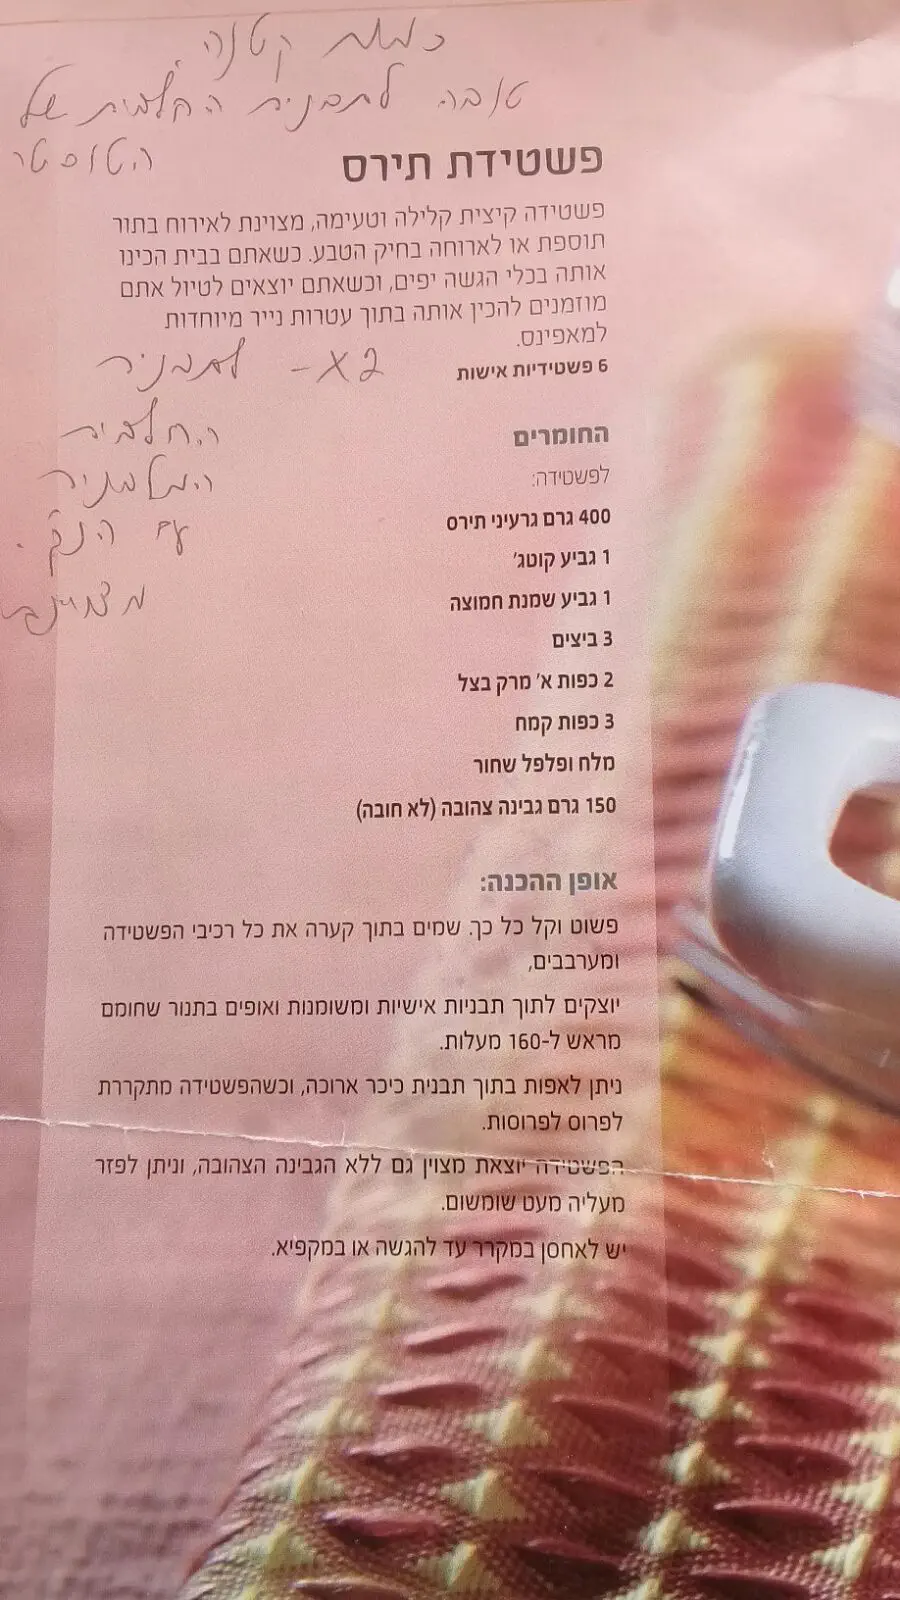 כמות קטנה,
טובה לתבנית החלבית של
הטוסטר
פשטידת תירס
פשטידה קיצית קלילה וטעימה, מצוינת לאירוח בתור
תוספת או לארוחה בחיק הטבע. כשאתם בבית הכינו
אותה בכלי הגשה יפים, וכשאתם יוצאים לטיול אתם
מוזמנים להכין אותה בתוך עטרות נייר מיוחדות
למאפינס.
6 פשטידיות אישות
2X - לתבנית
החלבית
המלבנית
עם הנק'.
מצויינת
החומרים
לפשטידה:
400 גרם גרעיני תירס
1 גביע קוטג'
1 גביע שמנת חמוצה
3 ביצים
2 כפות א' מרק בצל
3 כפות קמח
מלח ופלפל שחור
150 גרם גבינה צהובה (לא חובה)
אופן ההכנה:
פשוט וקל כל כך. שמים בתוך קערה את כל רכיבי הפשטידה
ומערבבים,
יוצקים לתוך תבניות אישיות ומשומנות ואופים בתנור שחומם
מראש ל-160 מעלות.
ניתן לאפות בתוך תבנית כיכר ארוכה, וכשהפשטידה מתקררת
לפרוס לפרוסות.
הפשטידה יוצאת מצוין גם ללא הגבינה הצהובה, וניתן לפזר
מעליה מעט שומשום.
יש לאחסן במקרר עד להגשה או במקפיא.